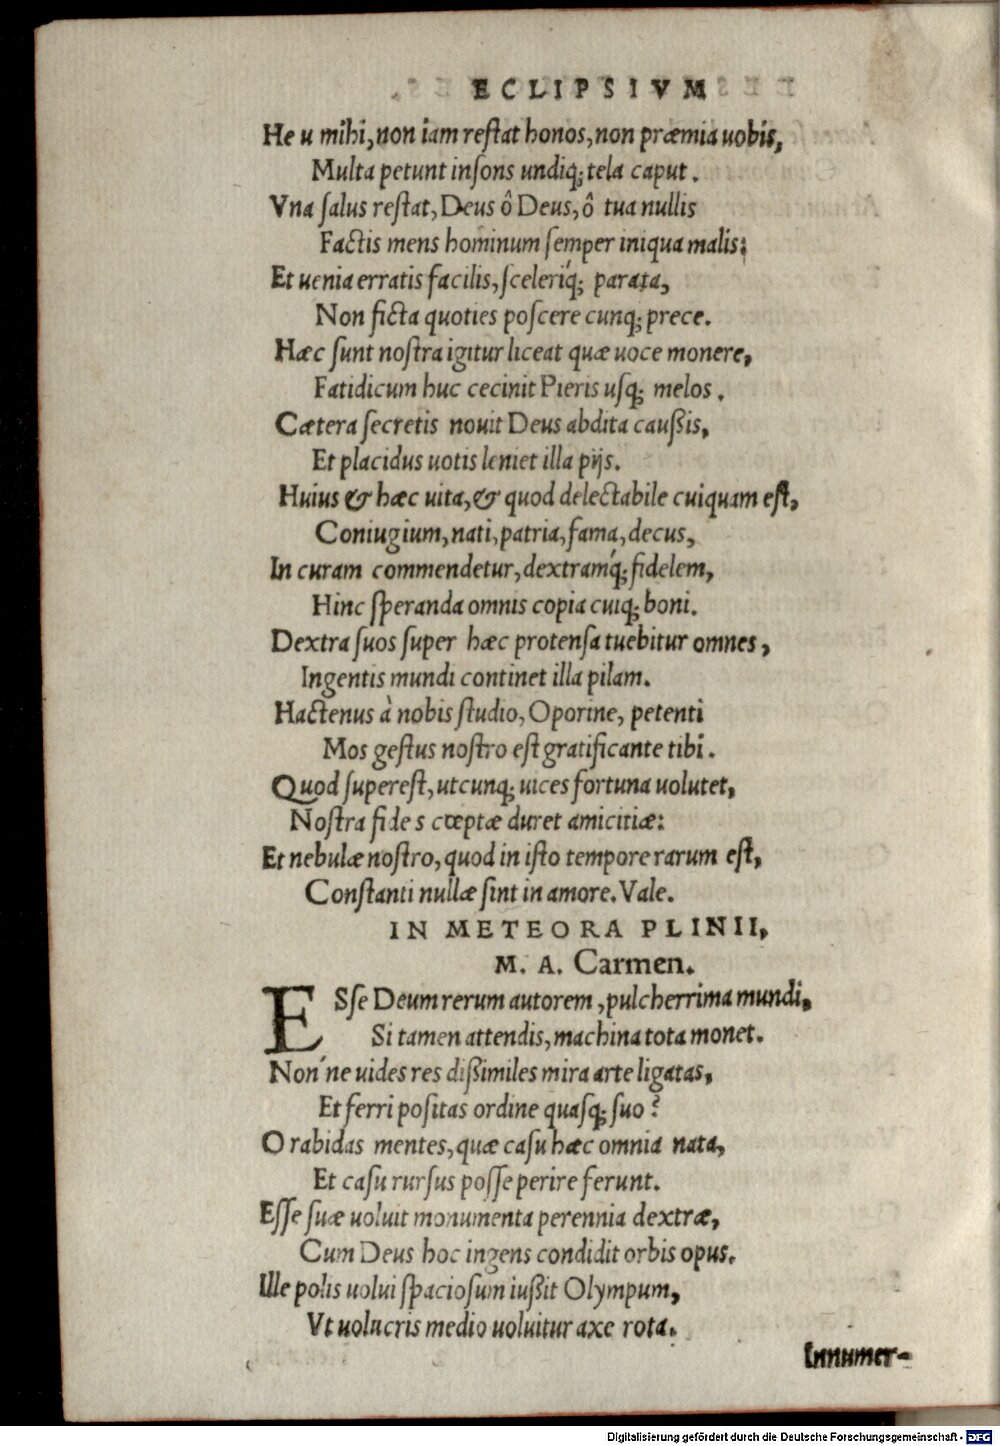 ECLIPSIVM
He u mihi, non iam reſtat honos, non præmia uobis,
Multa petunt inſons undiq; tela caput.
Vna ſalus reſtat, Deus ô Deus, ô tua nullis
Factis mens hominum ſemper iniqua malis:
Et uenia erratis facilis, ſceleriq́; parata,
Non ficta quoties poſcere cunq; prece.
Hæc ſunt noſtra igitur liceat quæ uoce monere,
Fatidicum huc cecinit Pieris uſq; melos.
Cætera ſecretis nouit Deus abdita cauſſis,
Et placidus uotis leniet illa pijs.
Huius & hæc uita, & quod delectabile cuiquam eſt,
Coniugium, nati, patria, fama, decus,
In curam commendetur, dextramq́; fidelem,
Hinc ſperanda omnis copia cuiq; boni.
Dextra ſuos ſuper hæc protenſa tuebitur omnes,
Ingentis mundi continet illa pilam.
Hactenus à nobis ſtudio, Oporine, petenti
Mos geſtus noſtro eſt gratificante tibi.
Quod ſupereſt, utcunq; uices fortuna uolutet,
Noſtra fide s cœptæ duret amicitiæ:
Et nebulæ noſtro, quod in iſto tempore rarum eſt,
Conſtanti nullæ ſint in amore. Vale.
IN METEORA PLINII,
M. A. Carmen.
ESſe Deum rerum autorem, pulcherrima mundi,
Si tamen attendis, machina tota monet.
Non´ne uides res diſſimiles mira arte ligatas,
Et ferri poſitas ordine quaſq; ſuo?
O rabidas mentes, quæ caſu hæc omnia nata,
Et caſu rurſus poſſe perire ferunt.
Eſſe ſuæ uoluit monumenta perennia dextræ,
Cum Deus hoc ingens condidit orbis opus.
Ille polis uolui ſpacioſum iuſſit Olympum,
Vt uolucris medio uoluitur axe rota.
Innumer-
Digitalisierung gefördert durch die Deutsche Forschungsgemeinschaft - DFG